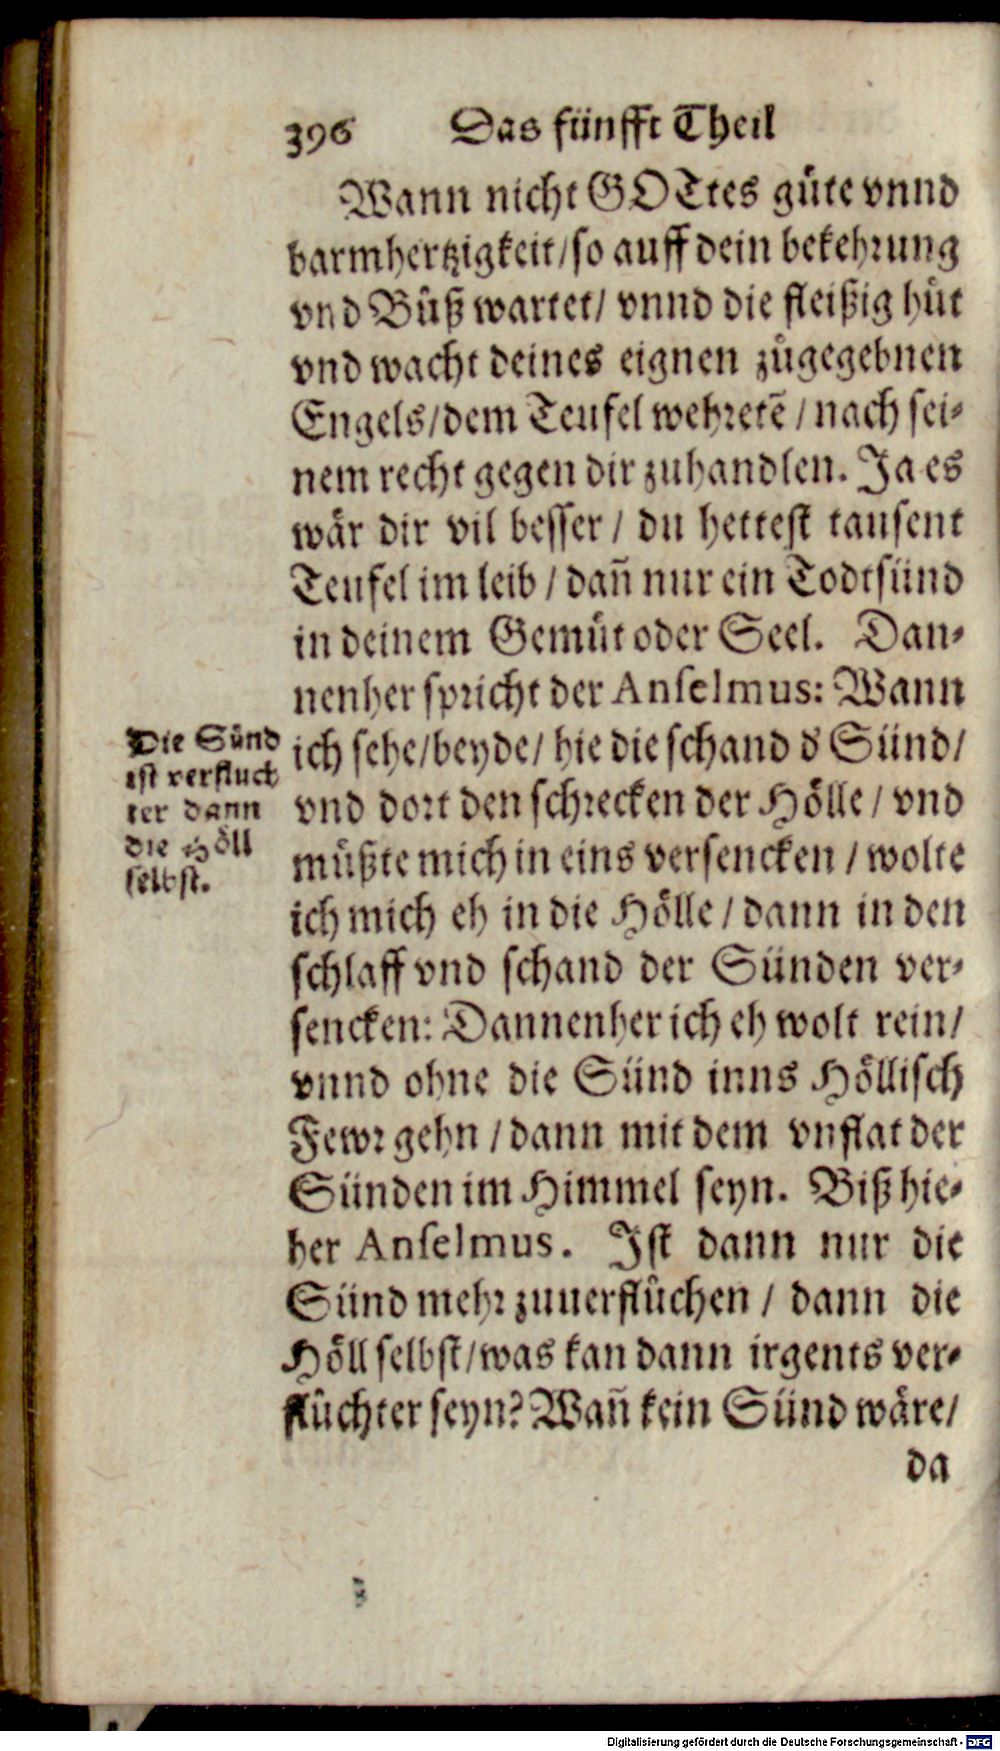 396 Das fünfft Theil
Wann nicht GOTtes güte vnnd
barmhertzigkeit/so auff dein bekehrung
vnd Bůß wartet/ vnnd die fleißig hůt
vnd wacht deines eignen zůgegebnen
Engels/dem Teufel wehretē / nach sei-
nem recht gegen dir zuhandlen. Ja es
wär dir vil besser / du hettest tausent
Teufel im leib / dañ nur ein Todtsünd
in deinem Gemüt oder Seel. Dan-
nenher spricht der Anselmus: Wann
Die Sünd
ist verfluch
ter dann
die Höll
selbst.
ich sehe/beyde/ hie die schand d' Sünd/
vnd dort den schrecken der Hölle / vnd
müßte mich in eins versencken / wolte
ich mich eh in die Hölle / dann in den
schlaff vnd schand der Sünden ver-
sencken: Dannenher ich eh wolt rein/
vnnd ohne die Sünd inns Höllisch
Fewr gehn / dann mit dem vnflat der
Sünden im Himmel seyn. Biß hie-
her Anselmus. Ist dann nur die
Sünd mehr zuuerflůchen / dann die
Höll selbst/was kan dann irgents ver-
flůchter seyn? Wañ kein Sünd wäre/
da
Digitalisierung gefördert durch die Deutsche Forschungsgemeinschaft - DFG